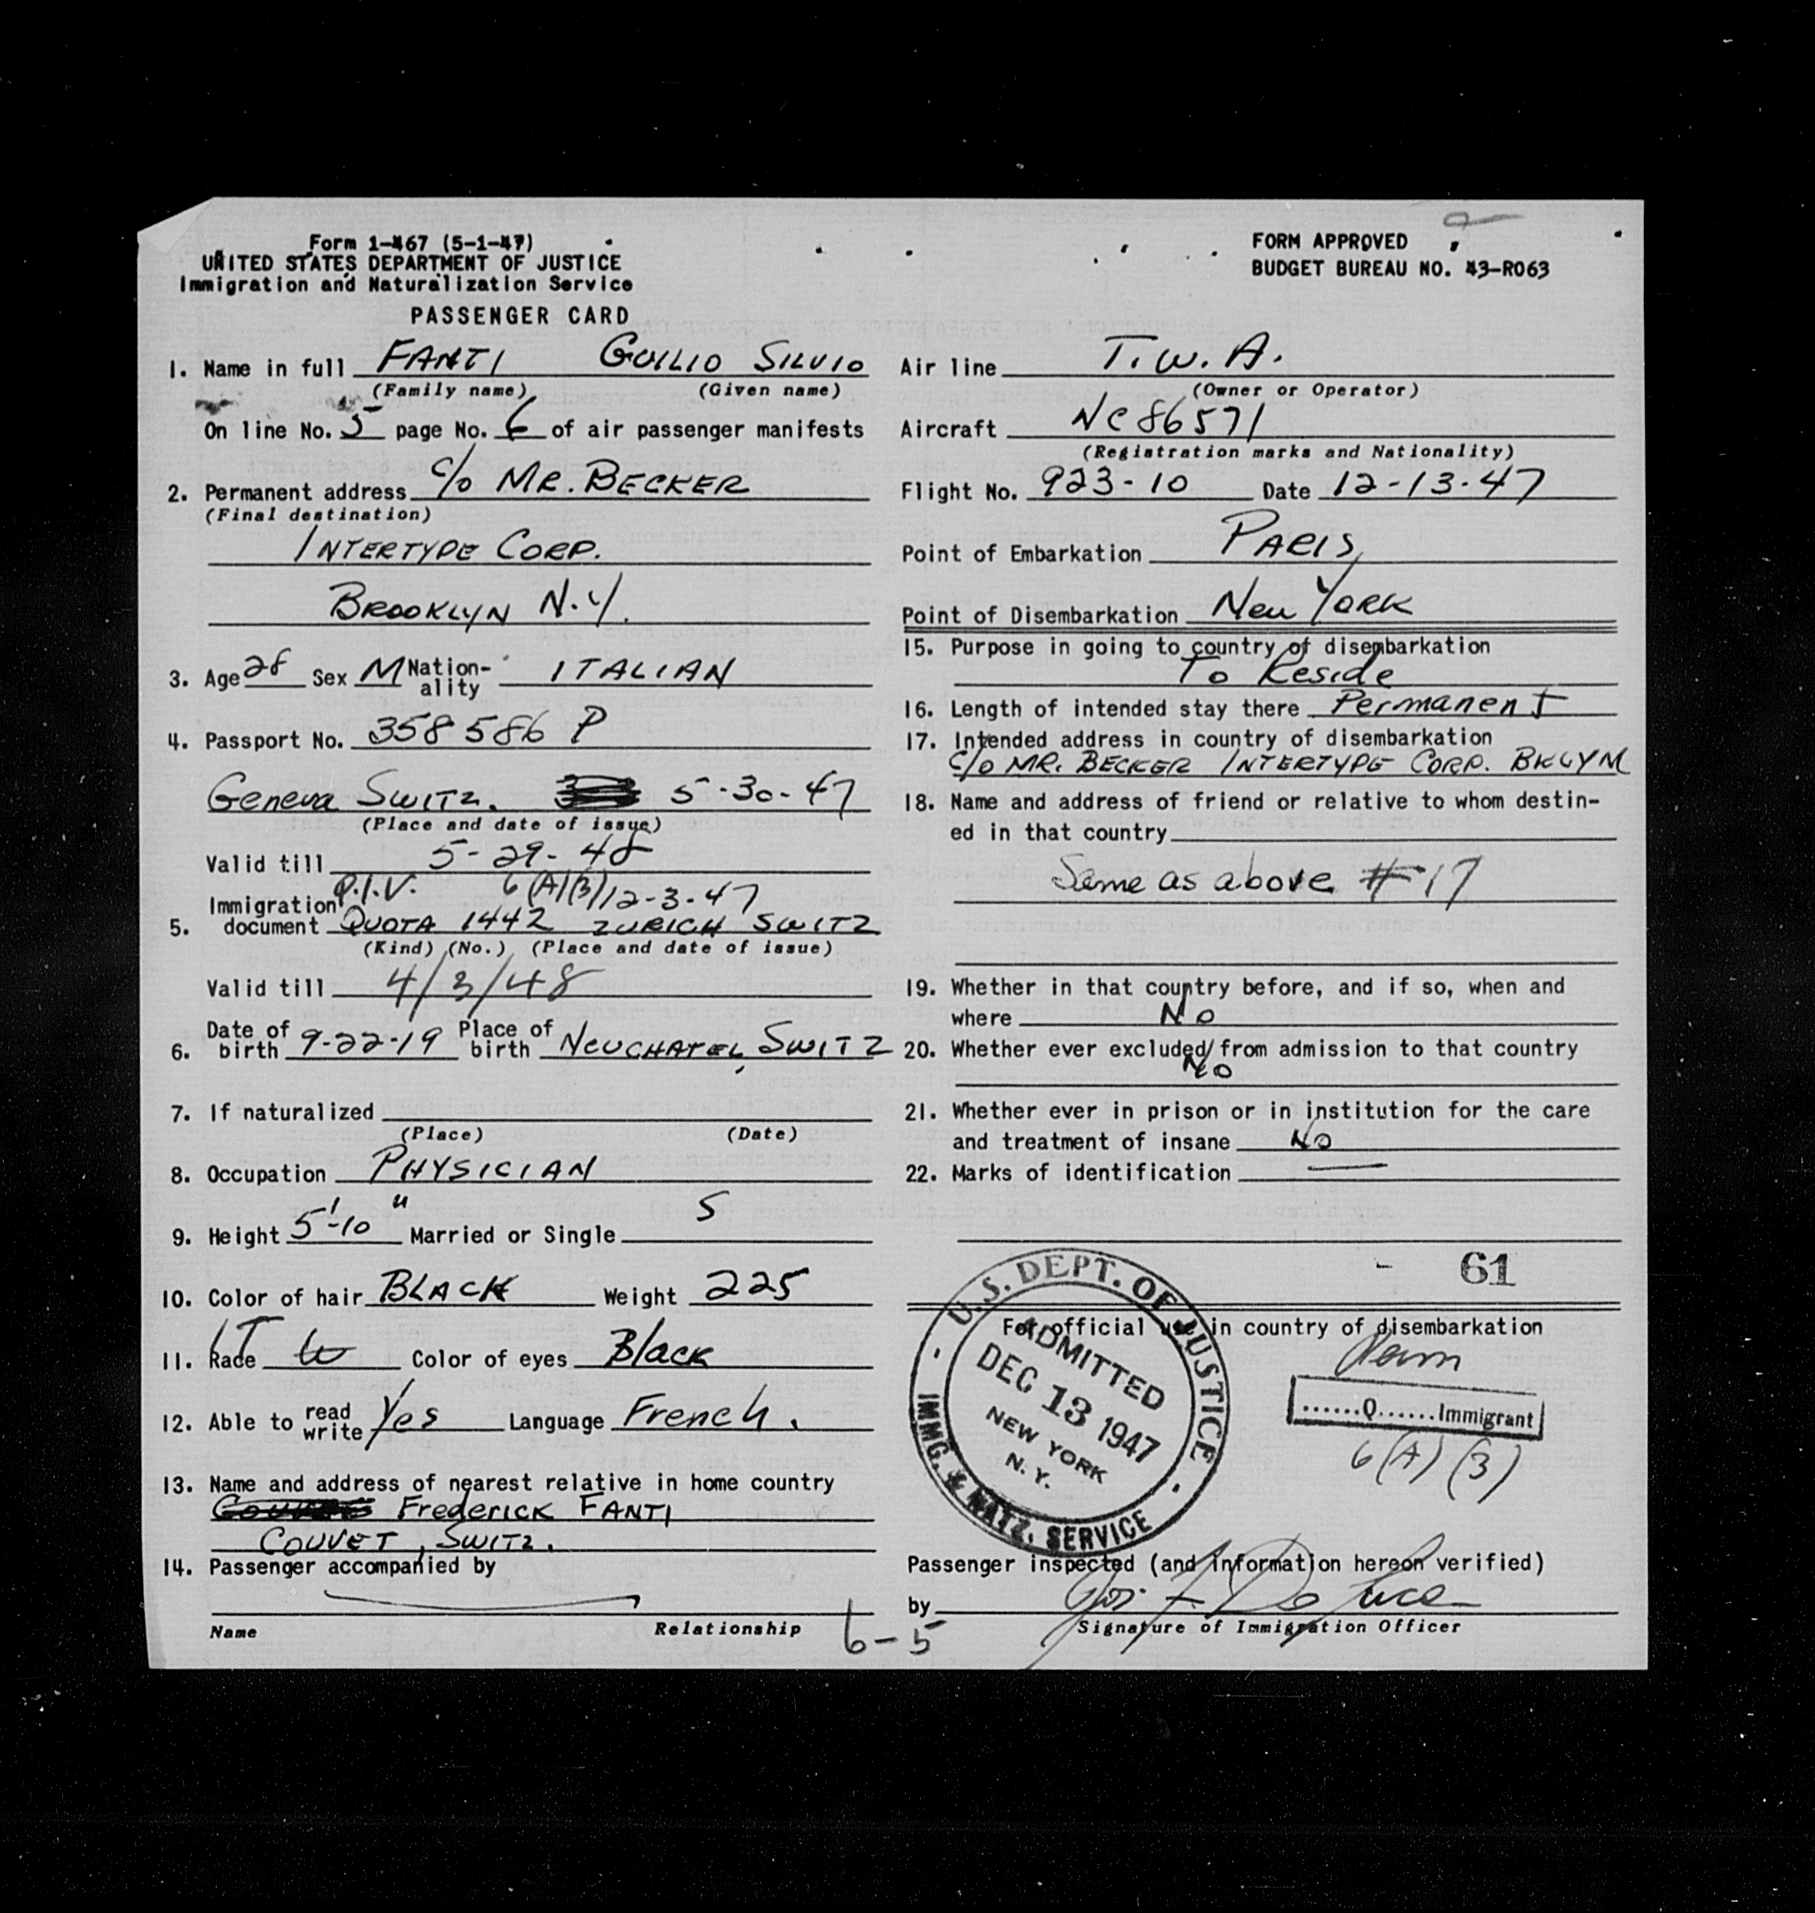 Form 1-467 (5-1-47)
UNITED STATES DEPARTMENT OF JUSTICE
Immigration and Naturalization Service
PASSENGER CARD
FORM APPROVED
BUDGET BUREAU NO. 43-R063
1. Name in full FANTI GUILIO SILVIO
(Family name) (Given name)
On line No. 5 page No. 6 of air passenger manifests
2. Permanent address c/o MR. BECKER
(Final destination)
INTERTYPE CORP.
BROOKLYN N.Y.
3. Age 28 Sex M Nation-ality ITALIAN
4. Passport No. 358586 P
Geneva SWITZ. 5-30-47
(Place and date of issue)
Valid till 5-29-48
Q.I.V. 6(A)(3) 12-3-47
5. Immigration document QUOTA 1442 ZURICH SWITZ
(Kind) (No.) (Place and date of issue)
Valid till 4/3/48
6. Date of birth 9-22-19 Place of birth NEUCHATEL, SWITZ
7. If naturalized
(Place) (Date)
8. Occupation PHYSICIAN
9. Height 5'-10" Married or Single S
10. Color of hair BLACK Weight 225
11. Race IT Color of eyes Black
12. Able to read write Yes Language French.
13. Name and address of nearest relative in home country
Frederick FANTI
COUVET, SWITZ.
14. Passenger accompanied by
Name Relationship
6-5
Air line T.W.A.
(Owner or Operator)
Aircraft NC86571
(Registration marks and Nationality)
Flight No. 923-10 Date 12-13-47
Point of Embarkation PARIS
Point of Disembarkation New YORK
15. Purpose in going to country of disembarkation
To Reside
16. Length of intended stay there Permanent
17. Intended address in country of disembarkation
c/o MR. BECKER INTERTYPE CORP. BKLYN
18. Name and address of friend or relative to whom destin-
ed in that country
Same as above #17
19. Whether in that country before, and if so, when and
where No
20. Whether ever excluded from admission to that country
No
21. Whether ever in prison or in institution for the care
and treatment of insane No
22. Marks of identification —
61
For official use in country of disembarkation
U.S. DEPT. OF JUSTICE
ADMITTED
DEC 13 1947
NEW YORK
N.Y.
IMMG. & NATZ. SERVICE
......Q......Immigrant
6(A)(3)
Passenger inspected (and information hereon verified)
by
Signature of Immigration Officer